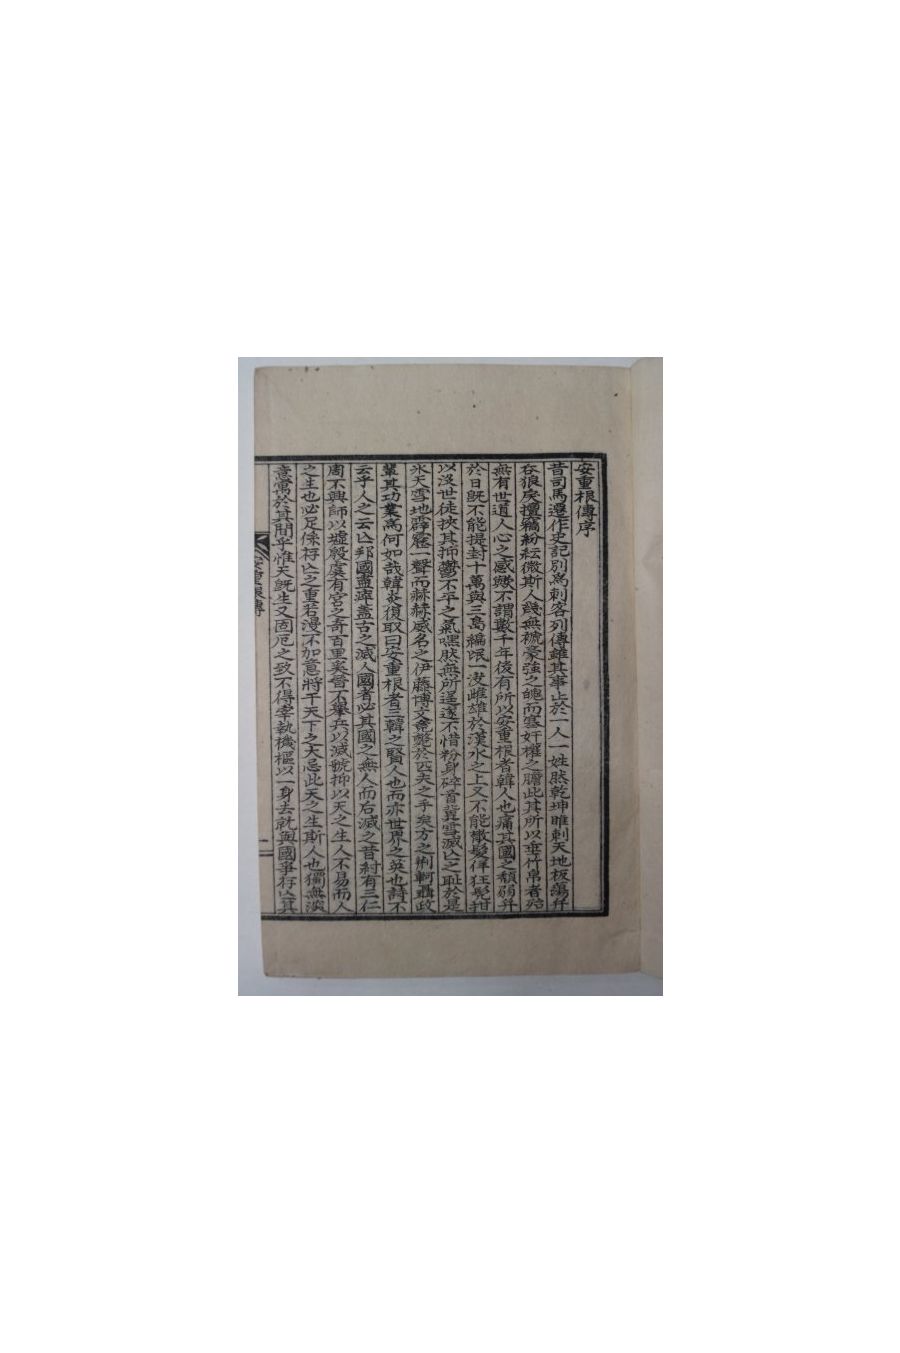 安重根傳序
昔司馬遷作史記別爲刺客列傳雖其事止於一人一姓然乾坤睢剌天地板蕩仟
吞狼戾擅竊紛紜微斯人幾無褫豪強之魄而寒奸權之膽此其所以垂竹帛者殆
無有世道人心之感歟不謂數千年後有所以安重根者韓人也痛其國之頹弱并
於日旣不能提封十萬與三島編氓一決雌雄於漢水之上又不能檄髮佯狂髡拑
以沒世徒挾其抑鬱不平之氣嘿然無所逞遂不惜粉身碎首冀雪滅亾之恥於是
氷天雪地霹靂一聲而赫赫威名之伊藤博文竟斃於匹夫之手矣方之荊軻聶政
輩其功業爲何如哉韓炎復取曰安重根者三韓之賢人也而亦世界之英也詩不
云乎人之云亾邦國盡瘁蓋古之滅人國者必其國之無人而后滅之昔紂有三仁
周不興師以墟殷虞有宮之奇百里奚晉不舉兵以滅虢抑以天之生人不易而人
之生也必足係存亾之重若漫不加意將干天下之大忌此天之生斯人也獨無深
意寓於其間乎惟天旣生又固厄之致不得宰執機樞以一身去就與國爭存亾其
安重根傳
一